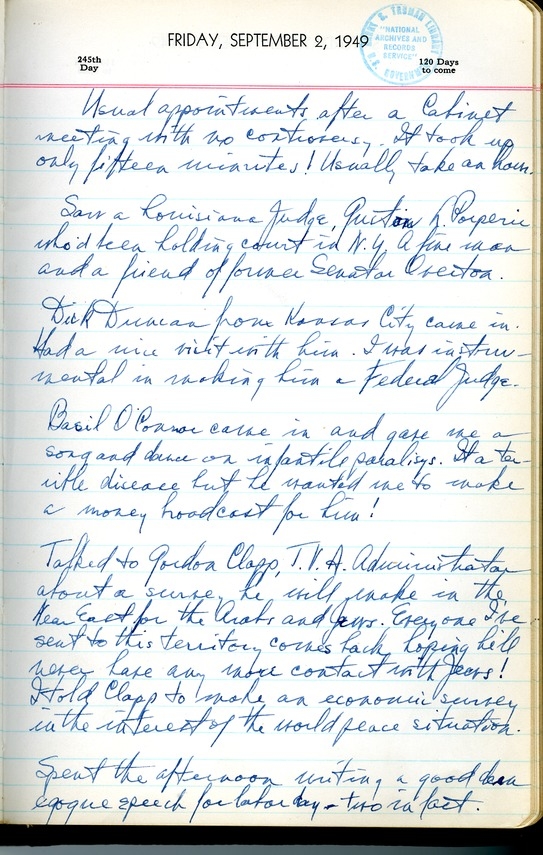 FRIDAY, SEPTEMBER 2, 1949
HARRY S. TRUMAN LIBRARY
"NATIONAL
ARCHIVES AND
RECORDS
SERVICE"
U.S. GOVERNMENT
245th
Day
120 Days
to come
Usual appointments after a Cabinet
meeting with no controversy. It took up
only fifteen minutes! Usually take an hour.
Saw a Louisiana Judge, L. Porterie
who'd been holding court in N.Y. A fine man
and a friend of former Senator Overton.
Dick Duncan from Kansas City came in.
Had a nice visit with him. I was instru-
mental in making him a Federal Judge.
Basil O'Connor came in and gave me a
song and dance on infantile paralisys. Its a ter-
rible disease but he wanted me to make
a money broadcast for him!
Talked to Gordon Clapp, T.V.A. Administrator
about a survey he will make in the
Near East for the Arabs and Jews. Everyone I've
sent to this territory comes back hoping he'll
never have any more contact with Jews!
I told Clapp to make an economic survey
in the interest of the world peace situation.
Spent the afternoon writing a good dem
egogue speech for labor day - two in fact.